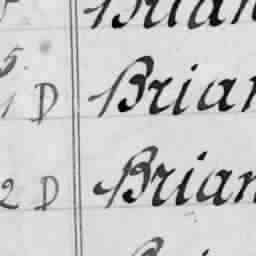 Brian
5
1 D Brian
2 D Brian